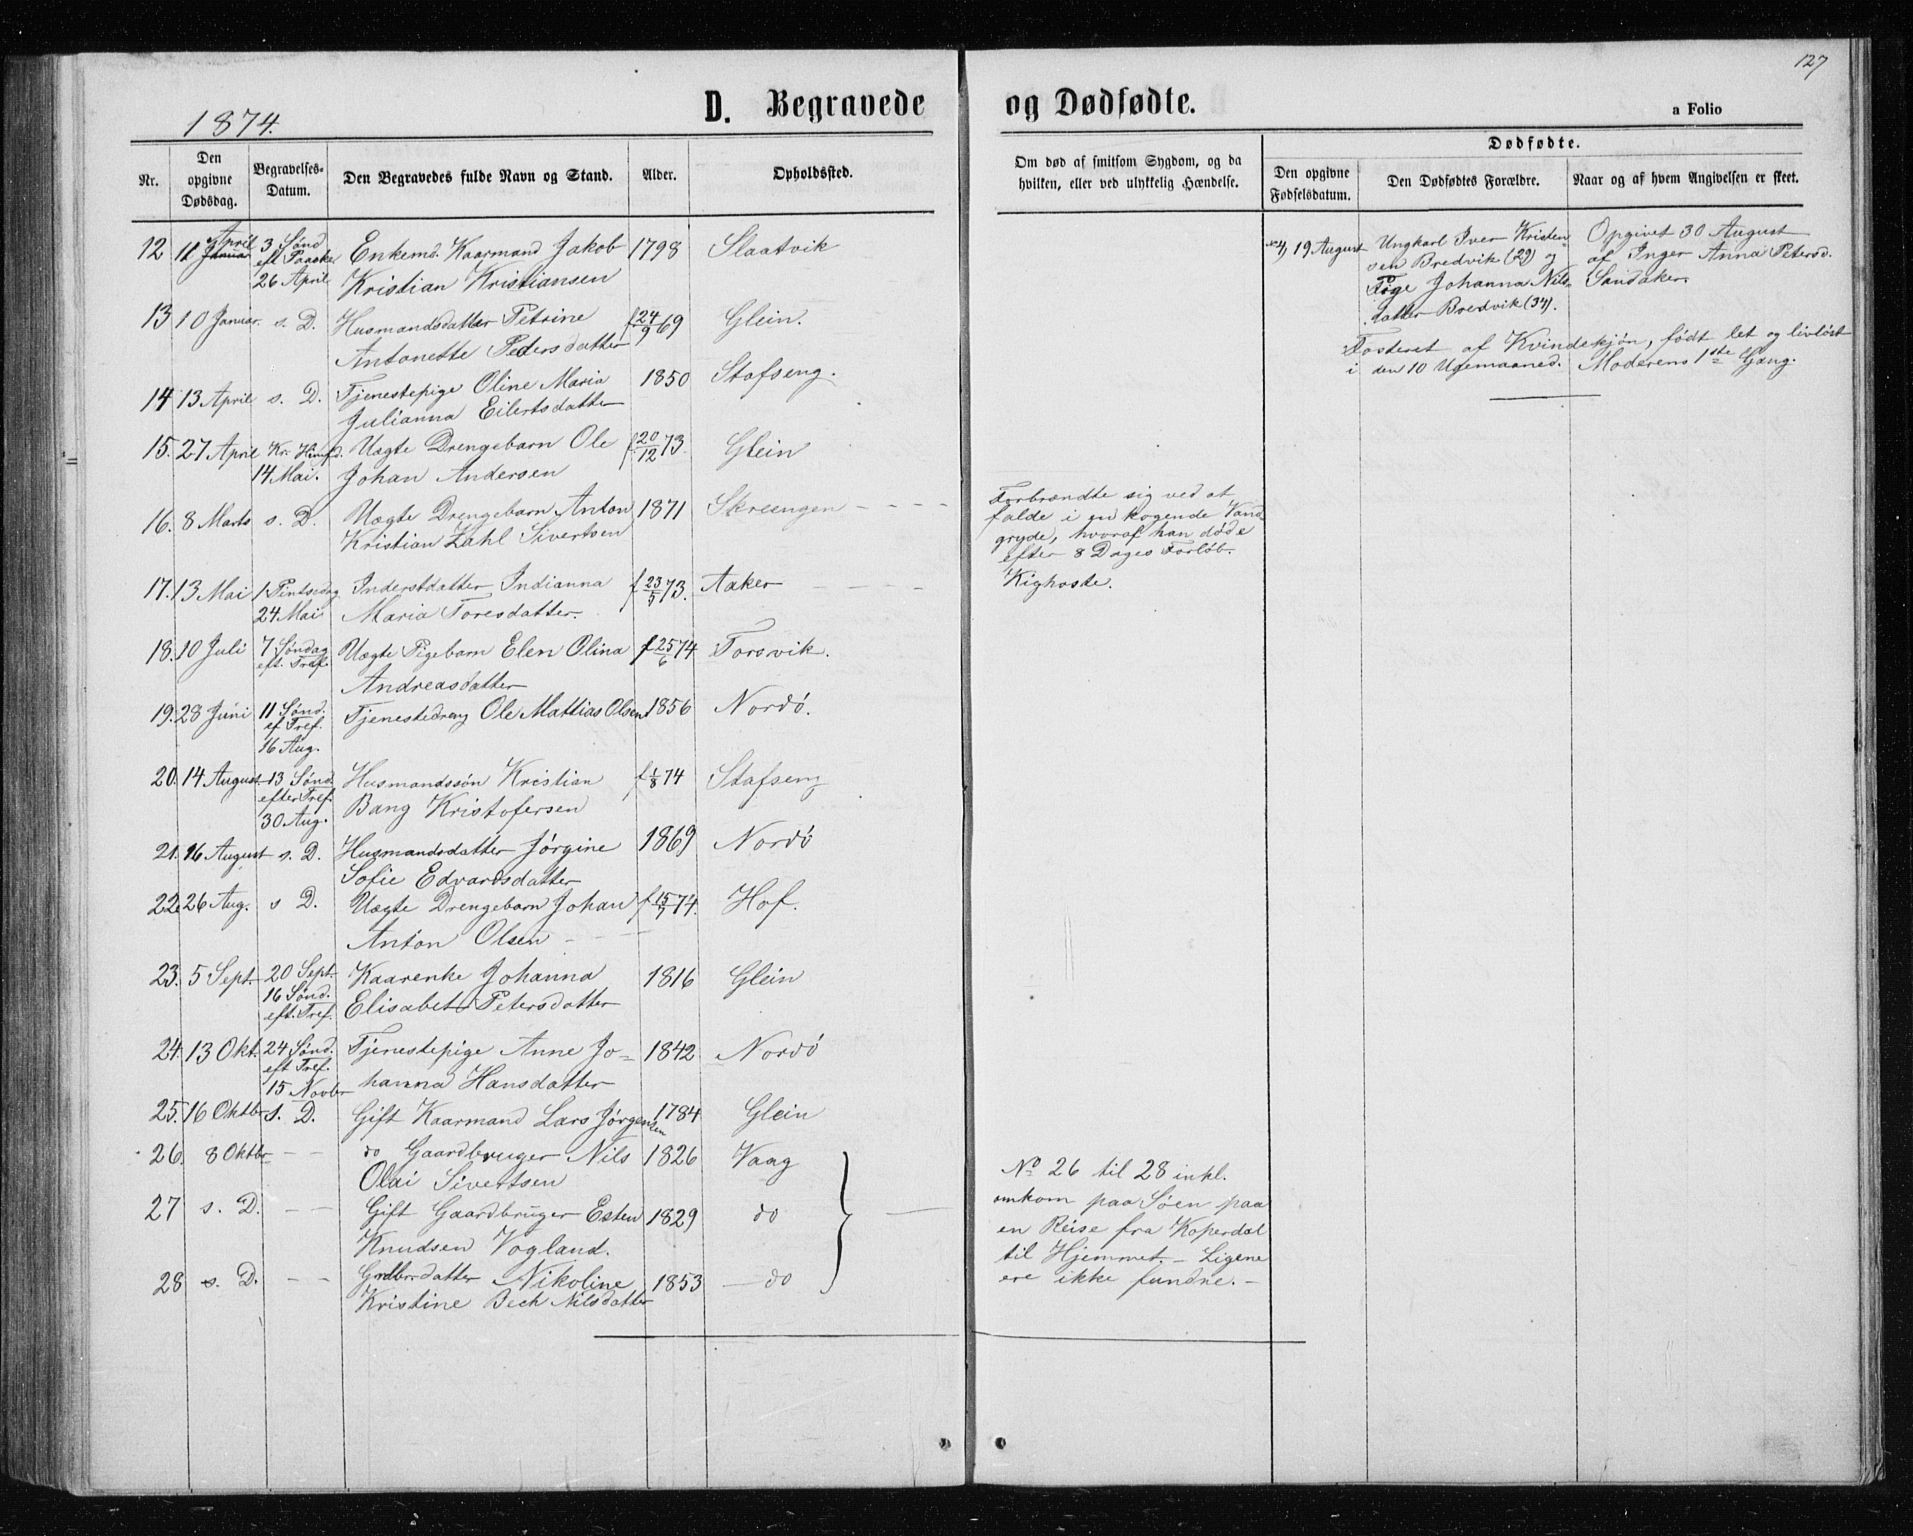 127
1874.
D. Begravede og Dødfødte.
a Folio
Nr.
Den opgivne Dødsdag.
Begravelses-Datum.
Den Begravedes fulde Navn og Stand.
Alder.
Opholdssted.
Om død af smitsom Sygdom, og da hvilken, eller ved ulykkelig Hændelse.
Dødfødte.
Den opgivne Fødselsdatum.
Den Dødfødtes Forældre.
Naar og af hvem Angivelsen er skeet.
12 11 April Januar 3 Sønd Enkemd. Kaarmand Jakob 1798 Slaatvik
eft Paaske
26 April Kristian Kristiansen
13 10 Januar s. D. Husmandsdatter Petrine f 24/9 69 Glein.
Antonette Pedersdatter
14 13 April s. D. Tjenestepige Oline Maria 1850 Stafseng.
Julianna Eilertsdatter
15. 27 April Kr. Himfd. Uægte Drengebarn Ole f 20/12 73. Glein
14 Mai. Johan Andersen
16. 8 Marts s. D. Uægte Drengebarn Anton 1871 Skreengen
Kristian Zahl Sivertsen
17. 13 Mai 1 Pintsedag Inderstdatter Indianna f 23/5 73. Aaker
24 Mai Maria Toresdatter.
18. 10 Juli 7 Søndag Uægte Pigebarn Elen Olina f 25/6 74 Forsvik.
eft. Tref. Andreasdatter
19. 28 Juni 11 Sønd. Tjenestedreng Ole Mattias Olsen 1856 Nordø.
ef. Tref.
16 Aug.
20. 14 August 13 Sønd. Husmandssøn Kristian f 1/8 74 Stafseng
efter Tref.
30 Aug. Bang Kristofersen
21. 16 August s. D. Husmandsdatter Jørgine 1869 Nordø
Sofie Edvardsdatter
22. 26 Aug. s D. Uægte Drengebarn Johan f 15/7 74. Hof.
Anton Olsen
23. 5 Sept. 20 Sept. Kaarenke Johanna 1816 Glein
16 Sønd.
eft. Tref. Elisabet Petersdatter
24. 13 Okt. 24 Sønd. Tjenestepige Anne Jo- 1842 Nordø
eft Tref.
15 Novbr hanna Hansdatter
25. 16 Oktbr s. D. Gift Kaarmand Lars Jørgensen 1784 Glein
26. 8 Oktbr – – do Gaardbruger Nils 1826 Vaag
Olai Sivertsen
27 s. D. – – Gift Gaardbruger Esten 1829 do
Knudsen Vogland.
28 s. D. – – Grdbrdatter Nikoline 1853 – do
Kristine Bech Nilsdatter
Forbrændte sig ved at
falde i en kogende Vand
gryde, hvoraf han døde
efter 8 Dages Forløb.
Kighoste.
No 26 til 28 inkl.
omkom paa Søen paa
en Reise fra Koperdal
til Hjemmet. – Ligene
ere ikke fundne. –
19 August Ungkarl Iver Kristen- Opgivet 30 August
sen Bredvik (29) og af Inger Anna Petersd.
Pige Johanna Nils- Sandaker.
datter Bredvik (34).
Fosteret af Kvindekjøn, født let og livløst
i den 10 Ugemaaned. Moderens 1ste Gang.